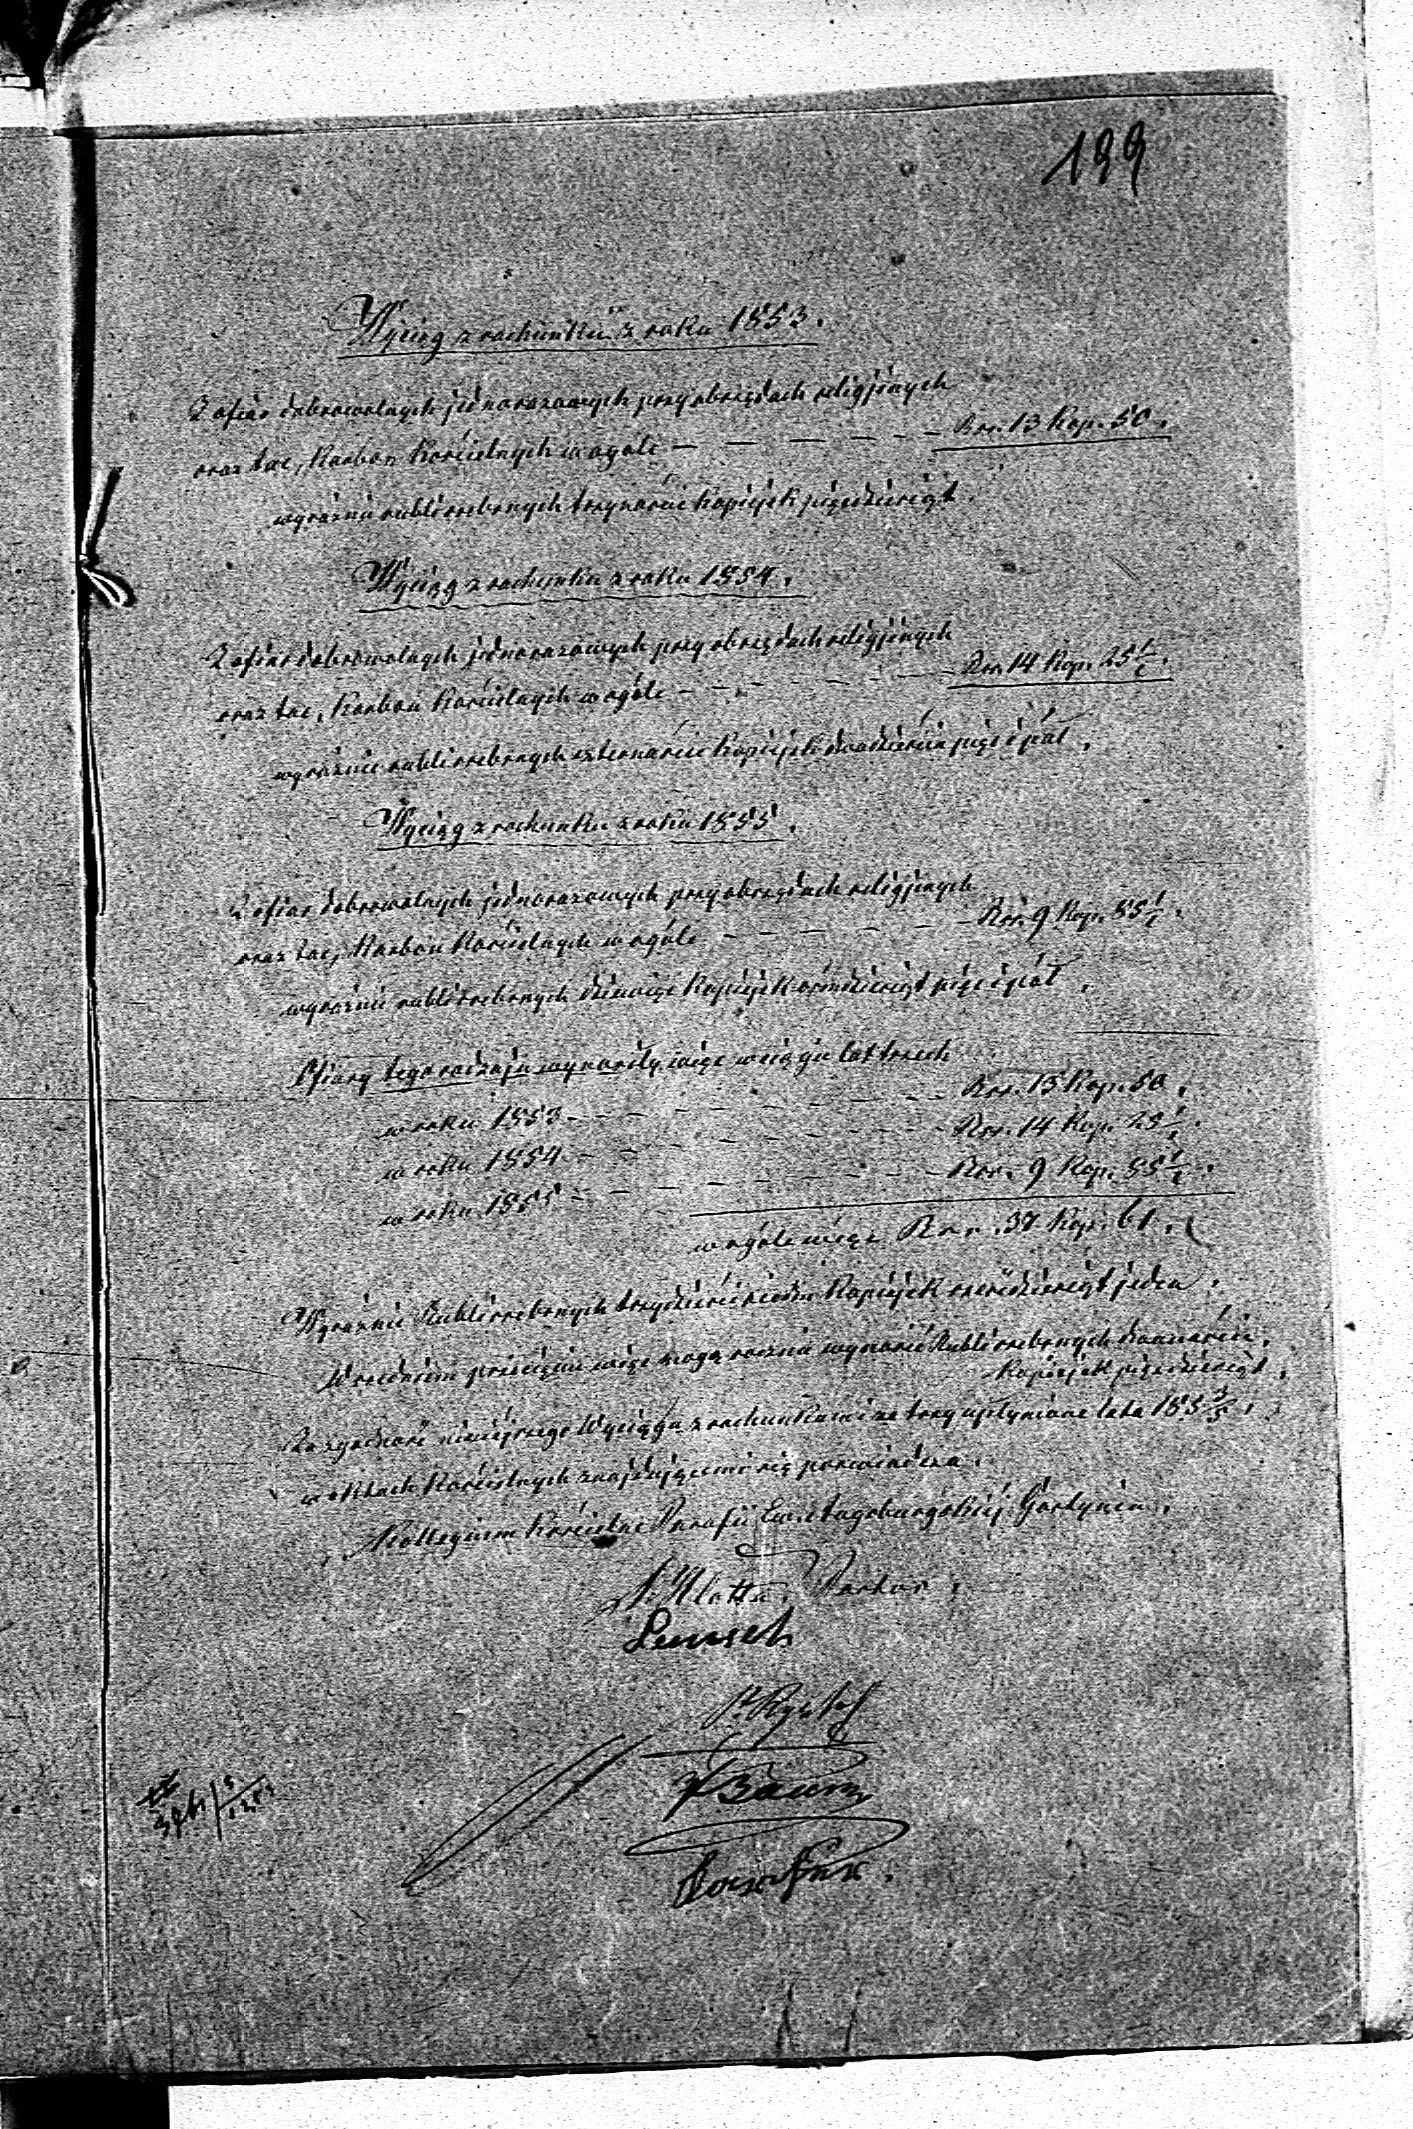 199
Wyciąg z rachunku z roku 1853.
Z ofiar dobrowolnych jednorazowych przy obrzędach religijnych
oraz tac, Karbon Kościelnych w ogóle — — — — — — Rsr. 13 Kop. 50.
wyraźnie rubli srebrnych trzynaście Kopiejek pięćdziesiąt.
Wyciąg z rachunku z roku 1854.
Z ofiar dobrowolnych jednorazowych przy obrzędach religijnych
oraz tac, Karbon Kościelnych w ogóle — — — — — — Rsr. 14 Kop. 25 1/2.
wyraźnie rubli srebrnych czternaście Kopiejek dwadzieścia pięć i pół.
Wyciąg z rachunku z roku 1855.
Z ofiar dobrowolnych jednorazowych przy obrzędach religijnych
oraz tac, Karbon Kościelnych w ogóle — — — — — — Rsr. 9 Kop. 85 1/2.
wyraźnie rubli srebrnych dziewięć Kopiejek ośmdziesiąt pięć i pół.
Ofiary tego rodzaju wynosiły więc w ciągu lat trzech
w roku 1853 — — — — — — Rsr. 13 Kop. 50.
w roku 1854 — — — — — — Rsr. 14 Kop. 25 1/2.
w roku 1855 — — — — — — Rsr. 9 Kop. 85 1/2.
w ogóle więc Rsr. 37 Kop. 61.
Wyraźnie Rubli srebrnych trzydzieści siedm Kopiejek sześćdziesiąt jeden.
W średnim przecięciu więc mogą rocznie wynosić Rubli srebrnych dwanaście,
Kopiejek pięćdziesiąt.
Za zgodność niniejszego Wyciągu z rachunkami za trzy upłynione lata 1853/5,
w aktach Kościelnych znajdującemi się poświadcza.
Kollegium Kościelne Parafii Ew. Augsburgskiej Gostynin.
Pastor.